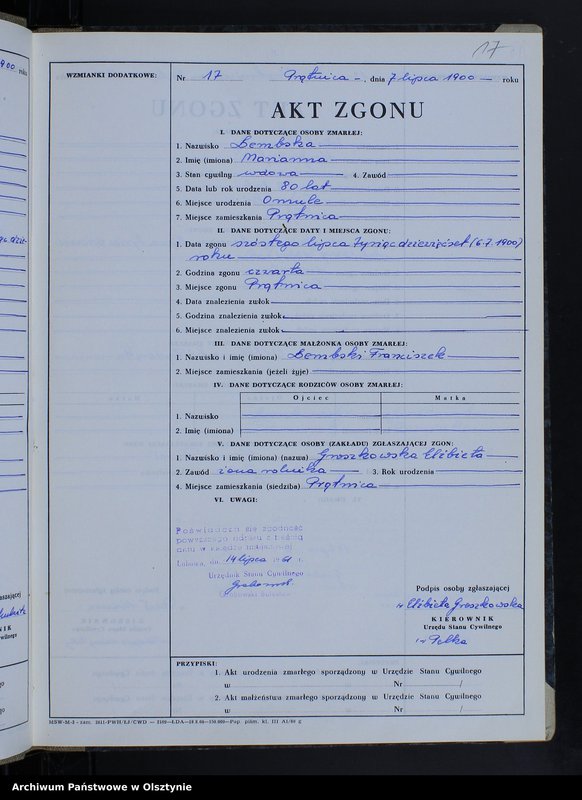 17
WZMIANKI DODATKOWE:
Nr 17 Prątnica -, dnia 7 lipca 1900 — roku
AKT ZGONU
I. DANE DOTYCZĄCE OSOBY ZMARŁEJ:
1. Nazwisko Dembska
2. Imię (imiona) Marianna
3. Stan cywilny wdowa 4. Zawód
5. Data lub rok urodzenia 80 lat
6. Miejsce urodzenia Omule
7. Miejsce zamieszkania Prątnica
II. DANE DOTYCZĄCE DATY I MIEJSCA ZGONU:
1. Data zgonu szóstego lipca tysiąc dziewięćset (6.7.1900)
roku
2. Godzina zgonu czwarta
3. Miejsce zgonu Prątnica
4. Data znalezienia zwłok
5. Godzina znalezienia zwłok
6. Miejsce znalezienia zwłok
III. DANE DOTYCZĄCE MAŁŻONKA OSOBY ZMARŁEJ:
1. Nazwisko i imię (imiona) Dembski Franciszek
2. Miejsce zamieszkania (jeżeli żyje)
IV. DANE DOTYCZĄCE RODZICÓW OSOBY ZMARŁEJ:
Ojciec Matka
1. Nazwisko
2. Imię (imiona)
V. DANE DOTYCZĄCE OSOBY (ZAKŁADU) ZGŁASZAJĄCEJ ZGON:
1. Nazwisko i imię (imiona) (nazwa) Groszkowska Elżbieta
2. Zawód żona rolnika 3. Rok urodzenia
4. Miejsce zamieszkania (siedziba) Prątnica
VI. UWAGI:
Poświadcza się zgodność
powyższego odpisu z treścią
aktu w księdze
Lubawa, dn. 14 lipca 1961 r.
Urzędnik Stanu Cywilnego
Podpis osoby zgłaszającej
Elżbieta Groszkowska
KIEROWNIK
Urzędu Stanu Cywilnego
PRZYPISKI:
1. Akt urodzenia zmarłego sporządzony w Urzędzie Stanu Cywilnego
w Nr /
2. Akt małżeństwa zmarłego sporządzony w Urzędzie Stanu Cywilnego
w Nr /
Archiwum Państwowe w Olsztynie